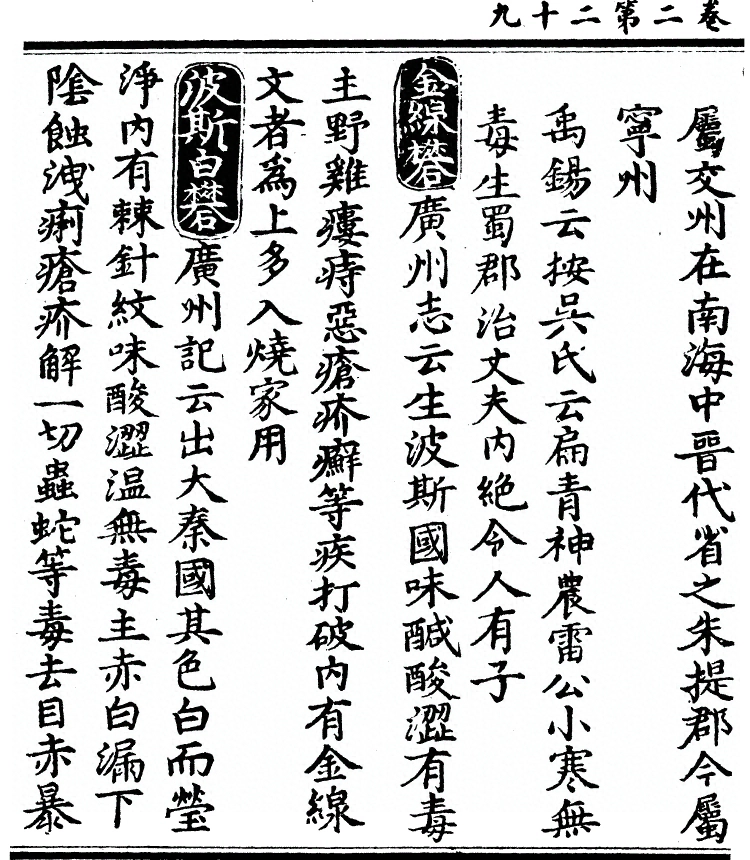 卷二第二十九
屬交州在南海中晉代省之朱提郡今屬
寧州
禹錫云按吳氏云扁青神農雷公小寒無
毒生蜀郡治丈夫內絕令人有子
金線礬廣州志云生波斯國味醎酸澀有毒
主野雞瘻痔惡瘡疥癬等疾打破內有金線
文者爲上多入燒家用
波斯白礬廣州記云出大秦國其色白而瑩
淨內有棘針紋味酸澀温無毒主赤白漏下
陰蝕洩痢瘡疥解一切蟲蛇等毒去目赤暴